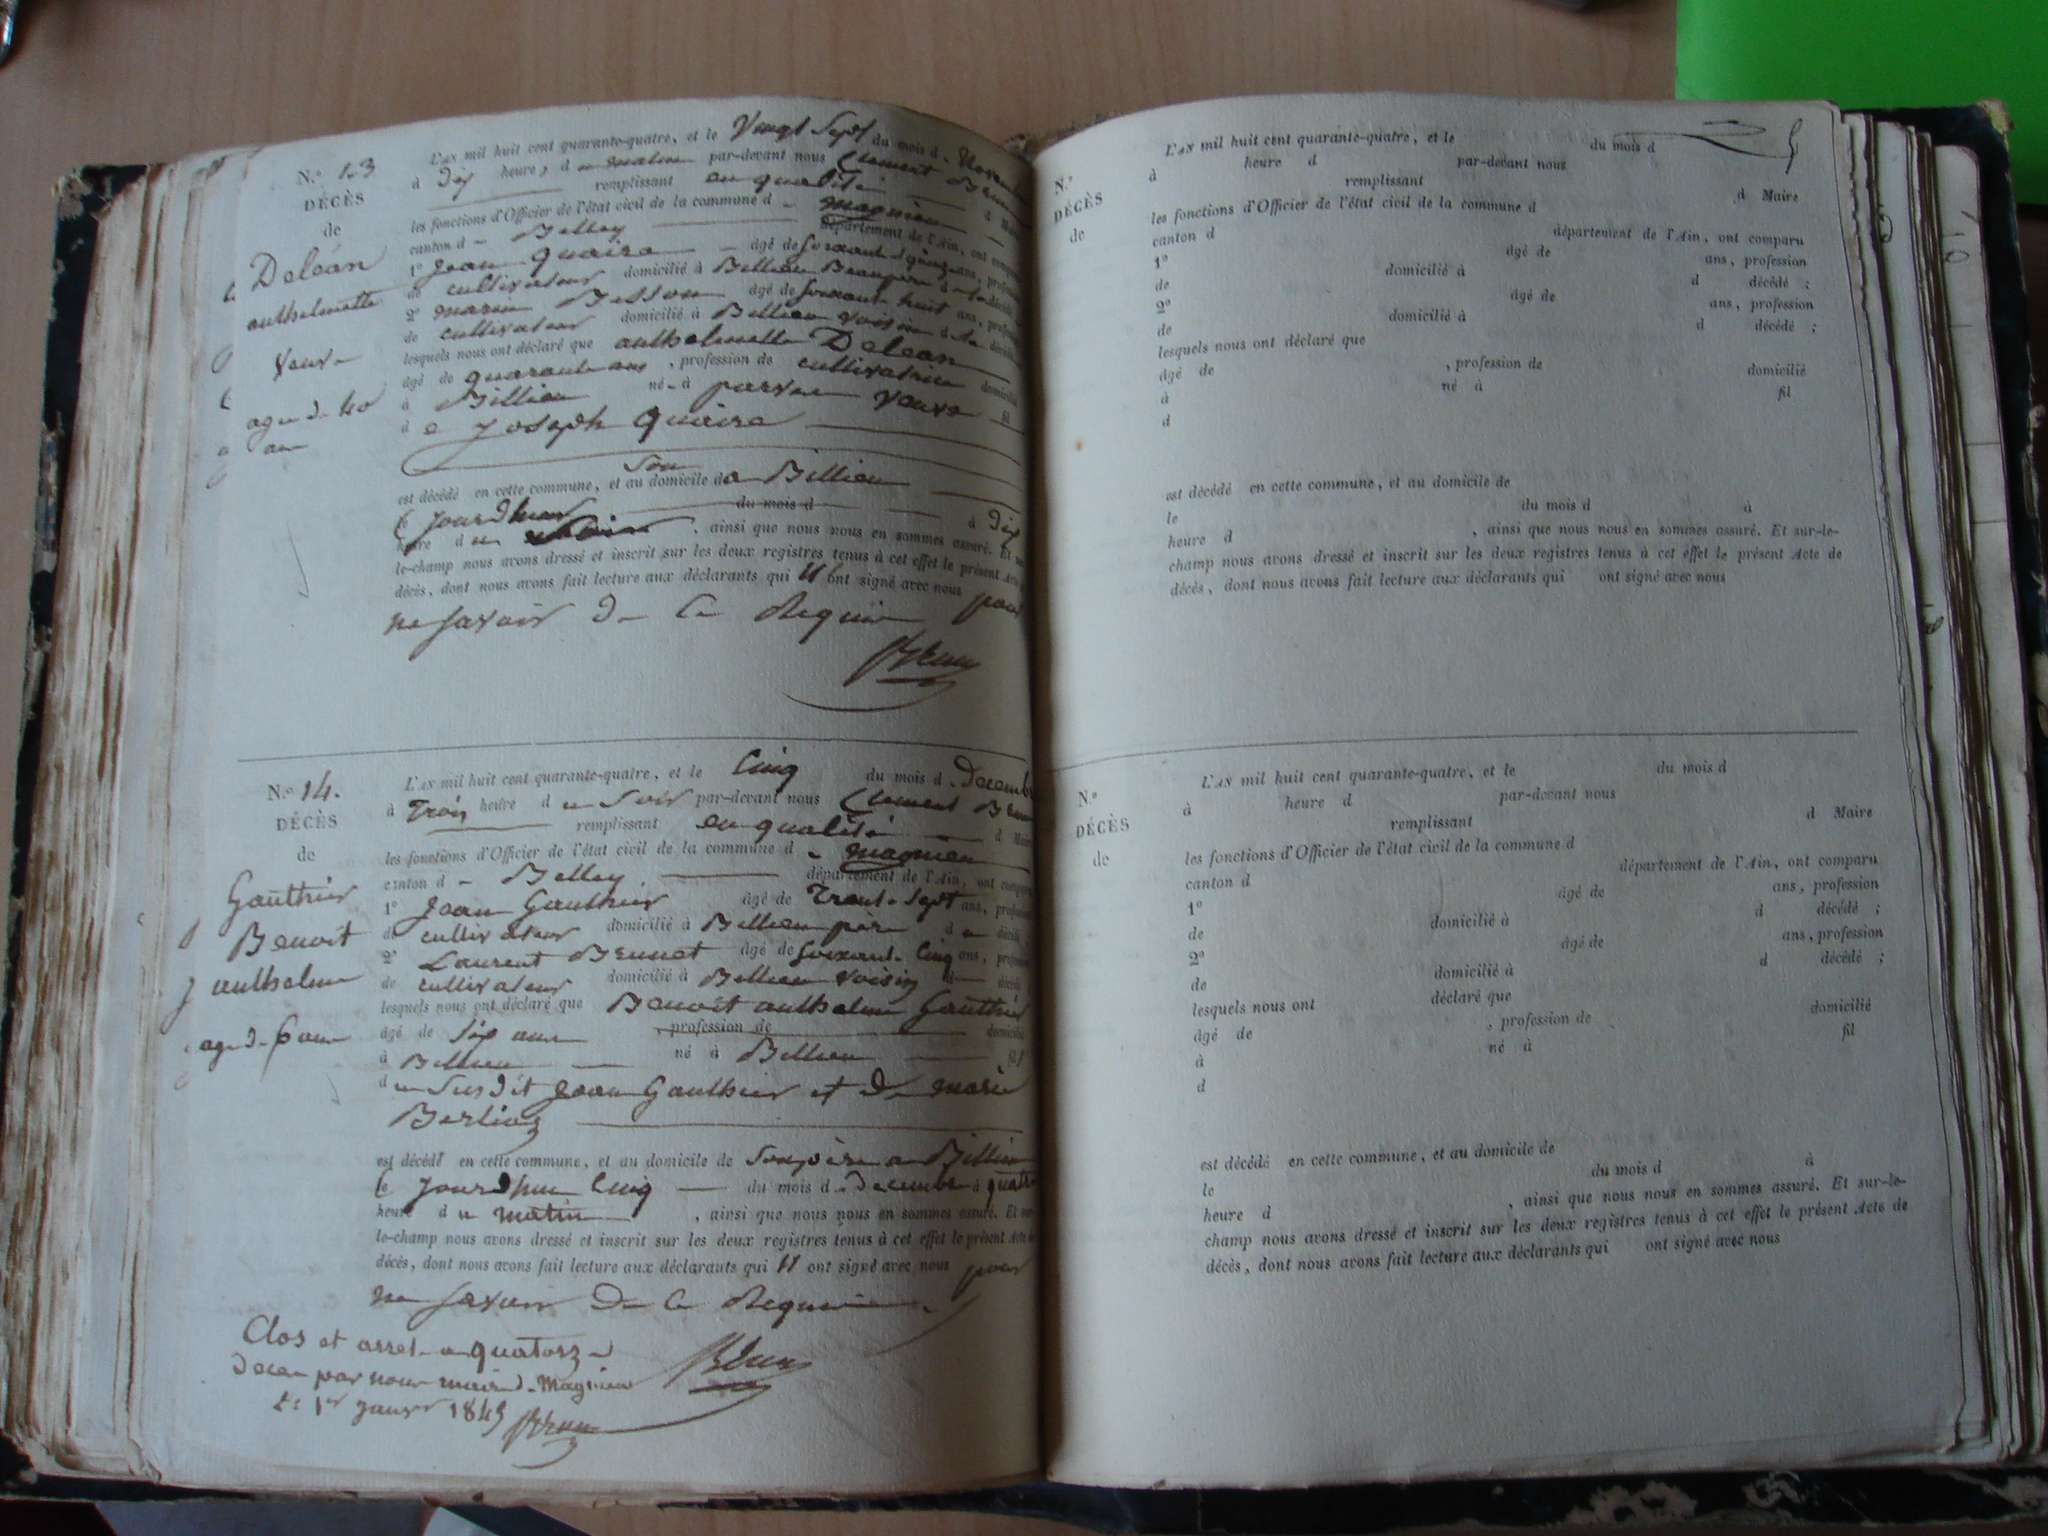 N.º 13
DÉCÈS
de
Delean
anthelmette
veuve
agee de 40
ans
L'AN mil huit cent quarante-quatre, et le Vingt Sept du mois d
à Dix heure, d u matin par-devant nous Clement Brun
remplissant en qualité d Maire
les fonctions d'Officier de l'état civil de la commune d e magnieu
canton d e Belley département de l'Ain, ont comparu
1º Jean Quaire âgé de soixante quinze ans, profession
de cultivateur domicilié à Billieu Beaupere de la décédé
2º marin Besson âgé de soixante huit ans, profession
de cultivateur domicilié à Billieu voisin d e la décédé
lesquels nous ont déclaré que anthelmette Delean
âgé de quarante ans, profession de cultivatrice domicilié
à Billieu né à parves veuve fil
d e Joseph Quaire
est décédé en cette commune, et au domicile de son a Billieu
le jourdhui du mois d à dix
heure d u matin, ainsi que nous nous en sommes assuré. Et sur-
le-champ nous avons dressé et inscrit sur les deux registres tenus à cet effet le présent Acte de
décès, dont nous avons fait lecture aux déclarants qui n ont signé avec nous pour
ne savoir de ce Requis
Brun
N.º 14.
DÉCÈS
de
Gauthier
Benoit
anthelme
age de 6 ans
L'AN mil huit cent quarante-quatre, et le Cinq du mois d Decembre
à Trois heure d u Soir par-devant nous Clement Brun
remplissant en qualité d Maire
les fonctions d'Officier de l'état civil de la commune d e magnieu
canton d e Belley département de l'Ain, ont comparu
1º Jean Gauthier âgé de Trente Sept ans, profession
de cultivateur domicilié à Billieu père d u décédé
2º Laurent Brunet âgé de soixante Cinq ans, profession
de cultivateur domicilié à Billieu voisin d décédé
lesquels nous ont déclaré que Benoit anthelme Gauthier
âgé de Six ans, profession de domicilié
à Billieu né à Billieu fils
d u Susdit Jean Gauthier et De marie
Berlioz
est décédé en cette commune, et au domicile de Son père a Billieu
le Jourdhui Cinq du mois d e Decembre à quatre
heure d u matin, ainsi que nous nous en sommes assuré. Et sur-
le-champ nous avons dressé et inscrit sur les deux registres tenus à cet effet le présent Acte de
décès, dont nous avons fait lecture aux déclarants qui n ont signé avec nous pour
ne savoir De ce Requis
Brun
Clos et arrete a quatorze
Deces par nous maire de Magnieu
le 1er Janvier 1845
Brun
N.º
DÉCÈS
de
L'AN mil huit cent quarante-quatre, et le du mois d
à heure d par-devant nous
remplissant d Maire
les fonctions d'Officier de l'état civil de la commune d
canton d département de l'Ain, ont comparu
1º âgé de ans, profession
de domicilié à d décédé ;
2º âgé de ans, profession
de domicilié à d décédé ;
lesquels nous ont déclaré que
âgé de , profession de domicilié
à né à fil
d
est décédé en cette commune, et au domicile de
le du mois d à
heure d , ainsi que nous nous en sommes assuré. Et sur-le-
champ nous avons dressé et inscrit sur les deux registres tenus à cet effet le présent Acte de
décès, dont nous avons fait lecture aux déclarants qui ont signé avec nous
N.º
DÉCÈS
de
L'AN mil huit cent quarante-quatre, et le du mois d
à heure d par-devant nous
remplissant d Maire
les fonctions d'Officier de l'état civil de la commune d
canton d département de l'Ain, ont comparu
1º âgé de ans, profession
de domicilié à d décédé ;
2º âgé de ans, profession
de domicilié à d décédé ;
lesquels nous ont déclaré que
âgé de , profession de domicilié
à né à fil
d
est décédé en cette commune, et au domicile de
le du mois d à
heure d , ainsi que nous nous en sommes assuré. Et sur-le-
champ nous avons dressé et inscrit sur les deux registres tenus à cet effet le présent Acte de
décès, dont nous avons fait lecture aux déclarants qui ont signé avec nous